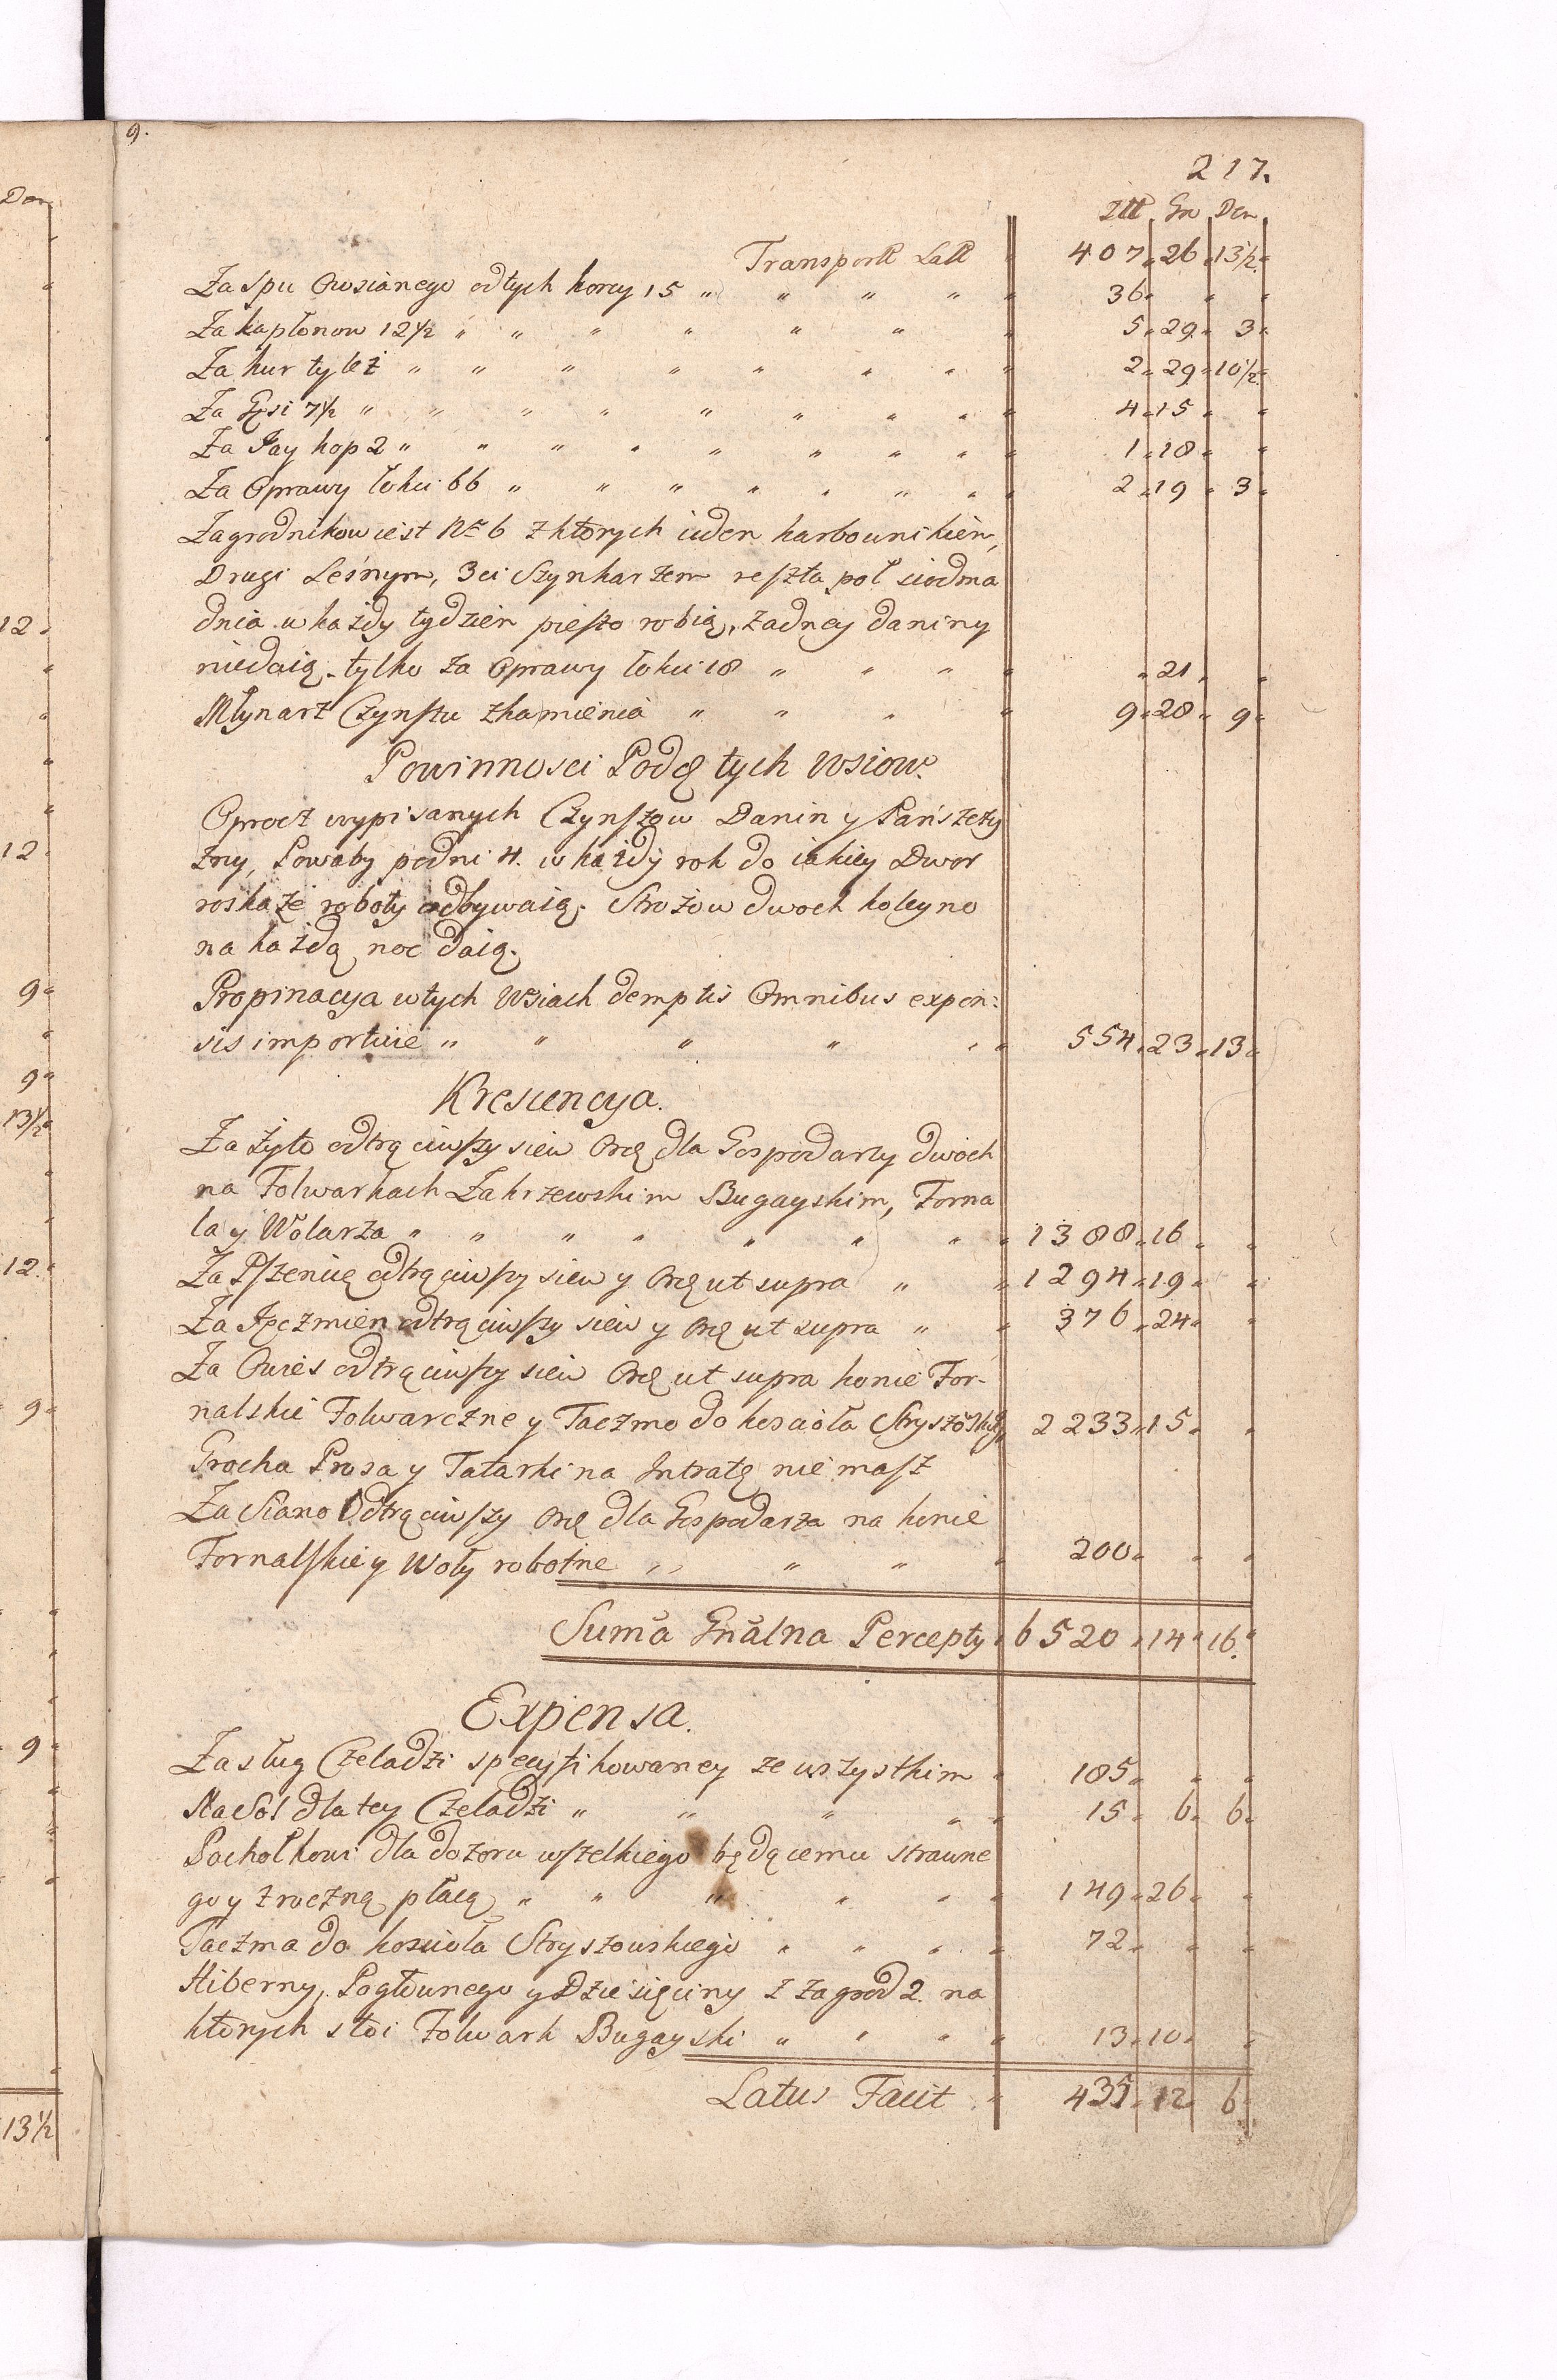 9.
217.
Złł Gr Den
Transportt Latt 407 26 13½
Za spu Owsianego od tych korcy 15 36
Za kapłonow 12½ 5 29 3
Za kur tyleż 2 29 10½
Za Gęsi 7½ 4 15
Za Jay kop 2 1 18
Za Oprawy łokci 66 2 19 3
Zagrodnikow iest Nro 6 z ktorych ieden karbownikiem,
Drugi Leśnym, 3ci Szynkarzem reszta poł siodma
dnia w każdy tydzien pieszo robią, żadney daniny
niedaią. tylko za Oprawy łokci 18 21
Młynarz Czynszu z kamienia 9 28 9
Powinnosci Podę tych Wsiow.
Oprocz wypisanych Czynszow Danin y Pańszczy
zny, Powaby po dni 4. w każdy rok do iakiey Dwor
roskaże roboty odbywaią. Strożow dwoch koleyno
na każdą noc daią.
Propinacya w tych Wsiach demptis Omnibus expen:
sis importuie 554 23 13
Krescencya.
Za żyto odtrąciwszy siew Ord dla Gospodarzy dwoch
na Folwarkach Zakrzewskim Bugayskim, Forna
la y Wolarza 1388 16
Za Pszenicę odtrąciwszy siew y Ord ut supra 1294 19
Za Jęczmien odtrąciwszy siew y Ord ut supra 376 24
Za Owies odtrąciwszy siew Ord ut supra konie For-
nalskie Folwarczne y Taczmo do koscioła 2233 15
Grochu Prosa y Tatarki na Intratę nie masz
Za Siano Odtrąciwszy Ord dla Gospodarza na konie
Fornalskie y Woły robotne 200
Suma Gnalna Percepty 6520 14 16.
Expensa.
Zasług Czeladzi specyfikowaney ze wszystkim 185
Na Sol dla tey Czeladzi 15 6 6
Pachołkowi dla dozoru wszelkiego będącemu strawne
go y z roczną płacą 149 26
Taczma do koscioła Stryszowskiego 72
Hiberny, Pogłownego y Dziesięciny z zagrod 2. na
ktorych stoi Folwark Bugayski 13 10
Latus Facit 435 12 6.
Den
12
12
9
9
13½
12
9
9
13½